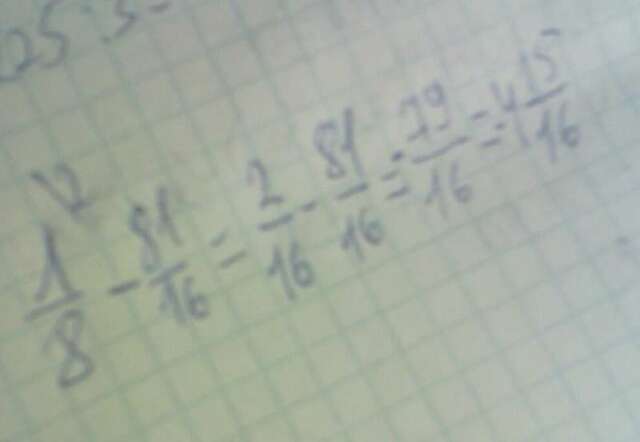 25:3-
\2
1/8 - 81/16 = 2/16 - 81/16 = 79/16 = 4 15/16